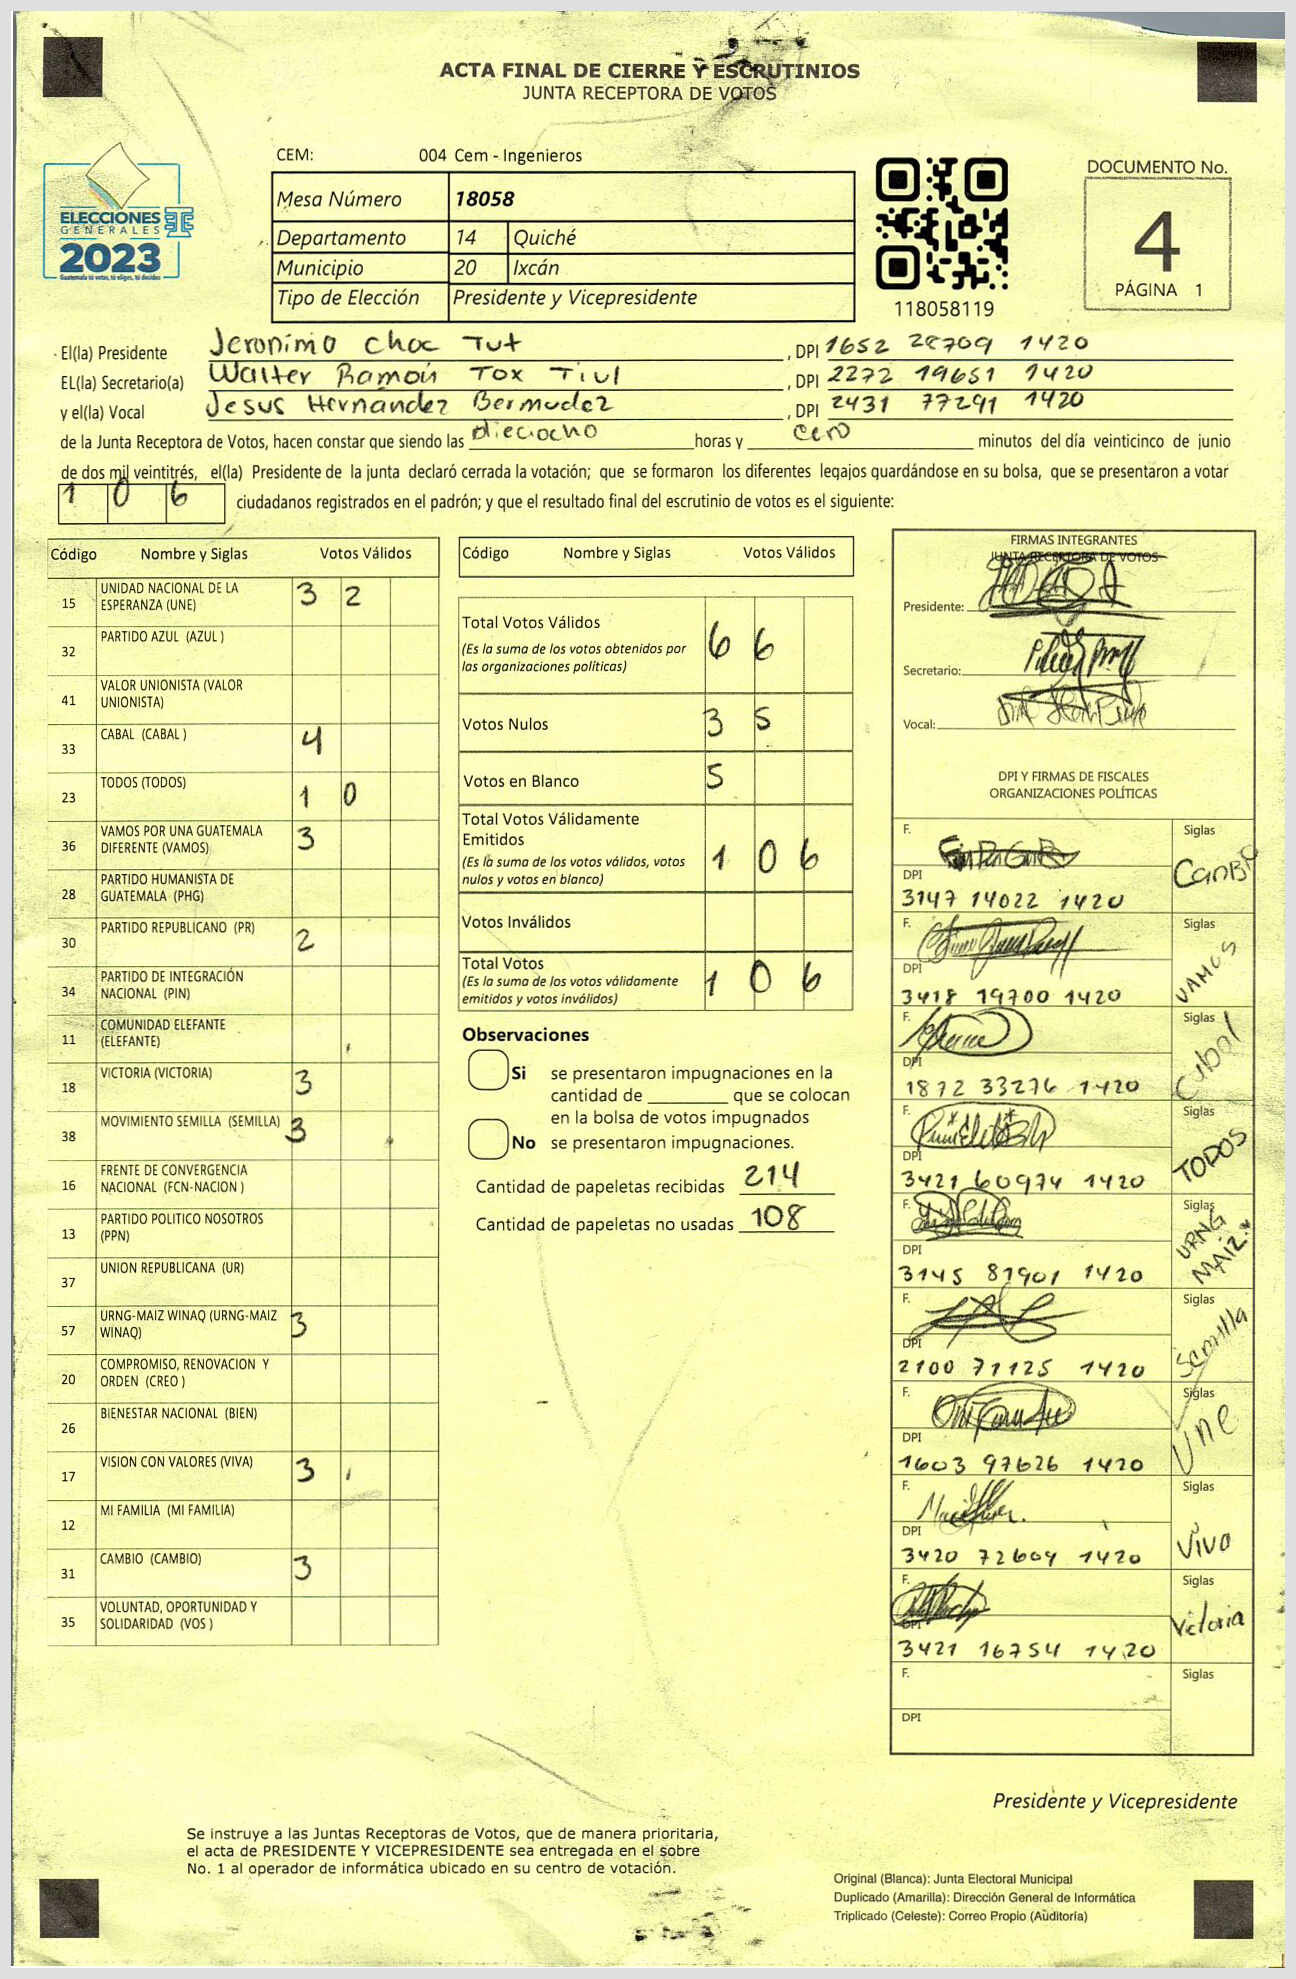 ACTA FINAL DE CIERRE Y ESCRUTINIOS
JUNTA RECEPTORA DE VOTOS
CEM: 004 Cem - Ingenieros
Mesa Número 18058
Departamento 14 Quiché
Municipio 20 Ixcán
Tipo de Elección Presidente y Vicepresidente
ELECCIONES
GENERALES
2023
Guatemala tú votas, tú eliges, tú decides
118058119
DOCUMENTO No.
4
PÁGINA 1
El(la) Presidente Jeronimo Choc Tut , DPI 1652 28709 1420
EL(la) Secretario(a) Walter Ramon Tox Tiul , DPI 2272 19651 1420
y el(la) Vocal Jesus Hernandez Bermudez , DPI 2431 77291 1420
de la Junta Receptora de Votos, hacen constar que siendo las dieciocho horas y cero minutos del día veinticinco de junio
de dos mil veintitrés, el(la) Presidente de la junta declaró cerrada la votación; que se formaron los diferentes legajos quardándose en su bolsa, que se presentaron a votar
1 0 6 ciudadanos registrados en el padrón; y que el resultado final del escrutinio de votos es el siguiente:
Código Nombre y Siglas Votos Válidos
15 UNIDAD NACIONAL DE LA ESPERANZA (UNE) 3 2
32 PARTIDO AZUL (AZUL )
41 VALOR UNIONISTA (VALOR UNIONISTA)
33 CABAL (CABAL ) 4
23 TODOS (TODOS) 1 0
36 VAMOS POR UNA GUATEMALA DIFERENTE (VAMOS) 3
28 PARTIDO HUMANISTA DE GUATEMALA (PHG)
30 PARTIDO REPUBLICANO (PR) 2
34 PARTIDO DE INTEGRACIÓN NACIONAL (PIN)
11 COMUNIDAD ELEFANTE (ELEFANTE)
18 VICTORIA (VICTORIA) 3
38 MOVIMIENTO SEMILLA (SEMILLA) 3
16 FRENTE DE CONVERGENCIA NACIONAL (FCN-NACION )
13 PARTIDO POLITICO NOSOTROS (PPN)
37 UNION REPUBLICANA (UR)
57 URNG-MAIZ WINAQ (URNG-MAIZ WINAQ) 3
20 COMPROMISO, RENOVACION Y ORDEN (CREO )
26 BIENESTAR NACIONAL (BIEN)
17 VISION CON VALORES (VIVA) 3
12 MI FAMILIA (MI FAMILIA)
31 CAMBIO (CAMBIO) 3
35 VOLUNTAD, OPORTUNIDAD Y SOLIDARIDAD (VOS )
Código Nombre y Siglas Votos Válidos
Total Votos Válidos 6 6
(Es la suma de los votos obtenidos por
las organizaciones políticas)
Votos Nulos 3 5
Votos en Blanco 5
Total Votos Válidamente
Emitidos 1 0 6
(Es la suma de los votos válidos, votos
nulos y votos en blanco)
Votos Inválidos
Total Votos 1 0 6
(Es la suma de los votos válidamente
emitidos y votos inválidos)
Observaciones
Si se presentaron impugnaciones en la
cantidad de ________ que se colocan
en la bolsa de votos impugnados
No se presentaron impugnaciones.
Cantidad de papeletas recibidas 214
Cantidad de papeletas no usadas 108
FIRMAS INTEGRANTES
JUNTA RECEPTORA DE VOTOS
Presidente:
Secretario:
Vocal:
DPI Y FIRMAS DE FISCALES
ORGANIZACIONES POLÍTICAS
F. Siglas
DPI
3147 14022 1420
F. Siglas VAMOS
DPI
3418 19700 1420
F. Siglas Cabal
DPI
1872 33276 1420
F. Siglas TODOS
DPI
3421 60974 1420
F. Siglas URNG MAIZ
DPI
3145 81901 1420
F. Siglas Semilla
DPI
2100 71125 1420
F. Siglas Une
DPI
1603 97626 1420
F. Siglas Viva
DPI
3420 72609 1420
F. Siglas Victoria
DPI
3421 16754 1420
F. Siglas
DPI
Presidente y Vicepresidente
Se instruye a las Juntas Receptoras de Votos, que de manera prioritaria,
el acta de PRESIDENTE Y VICEPRESIDENTE sea entregada en el sobre
No. 1 al operador de informática ubicado en su centro de votación.
Original (Blanca): Junta Electoral Municipal
Duplicado (Amarilla): Dirección General de Informática
Triplicado (Celeste): Correo Propio (Auditoría)